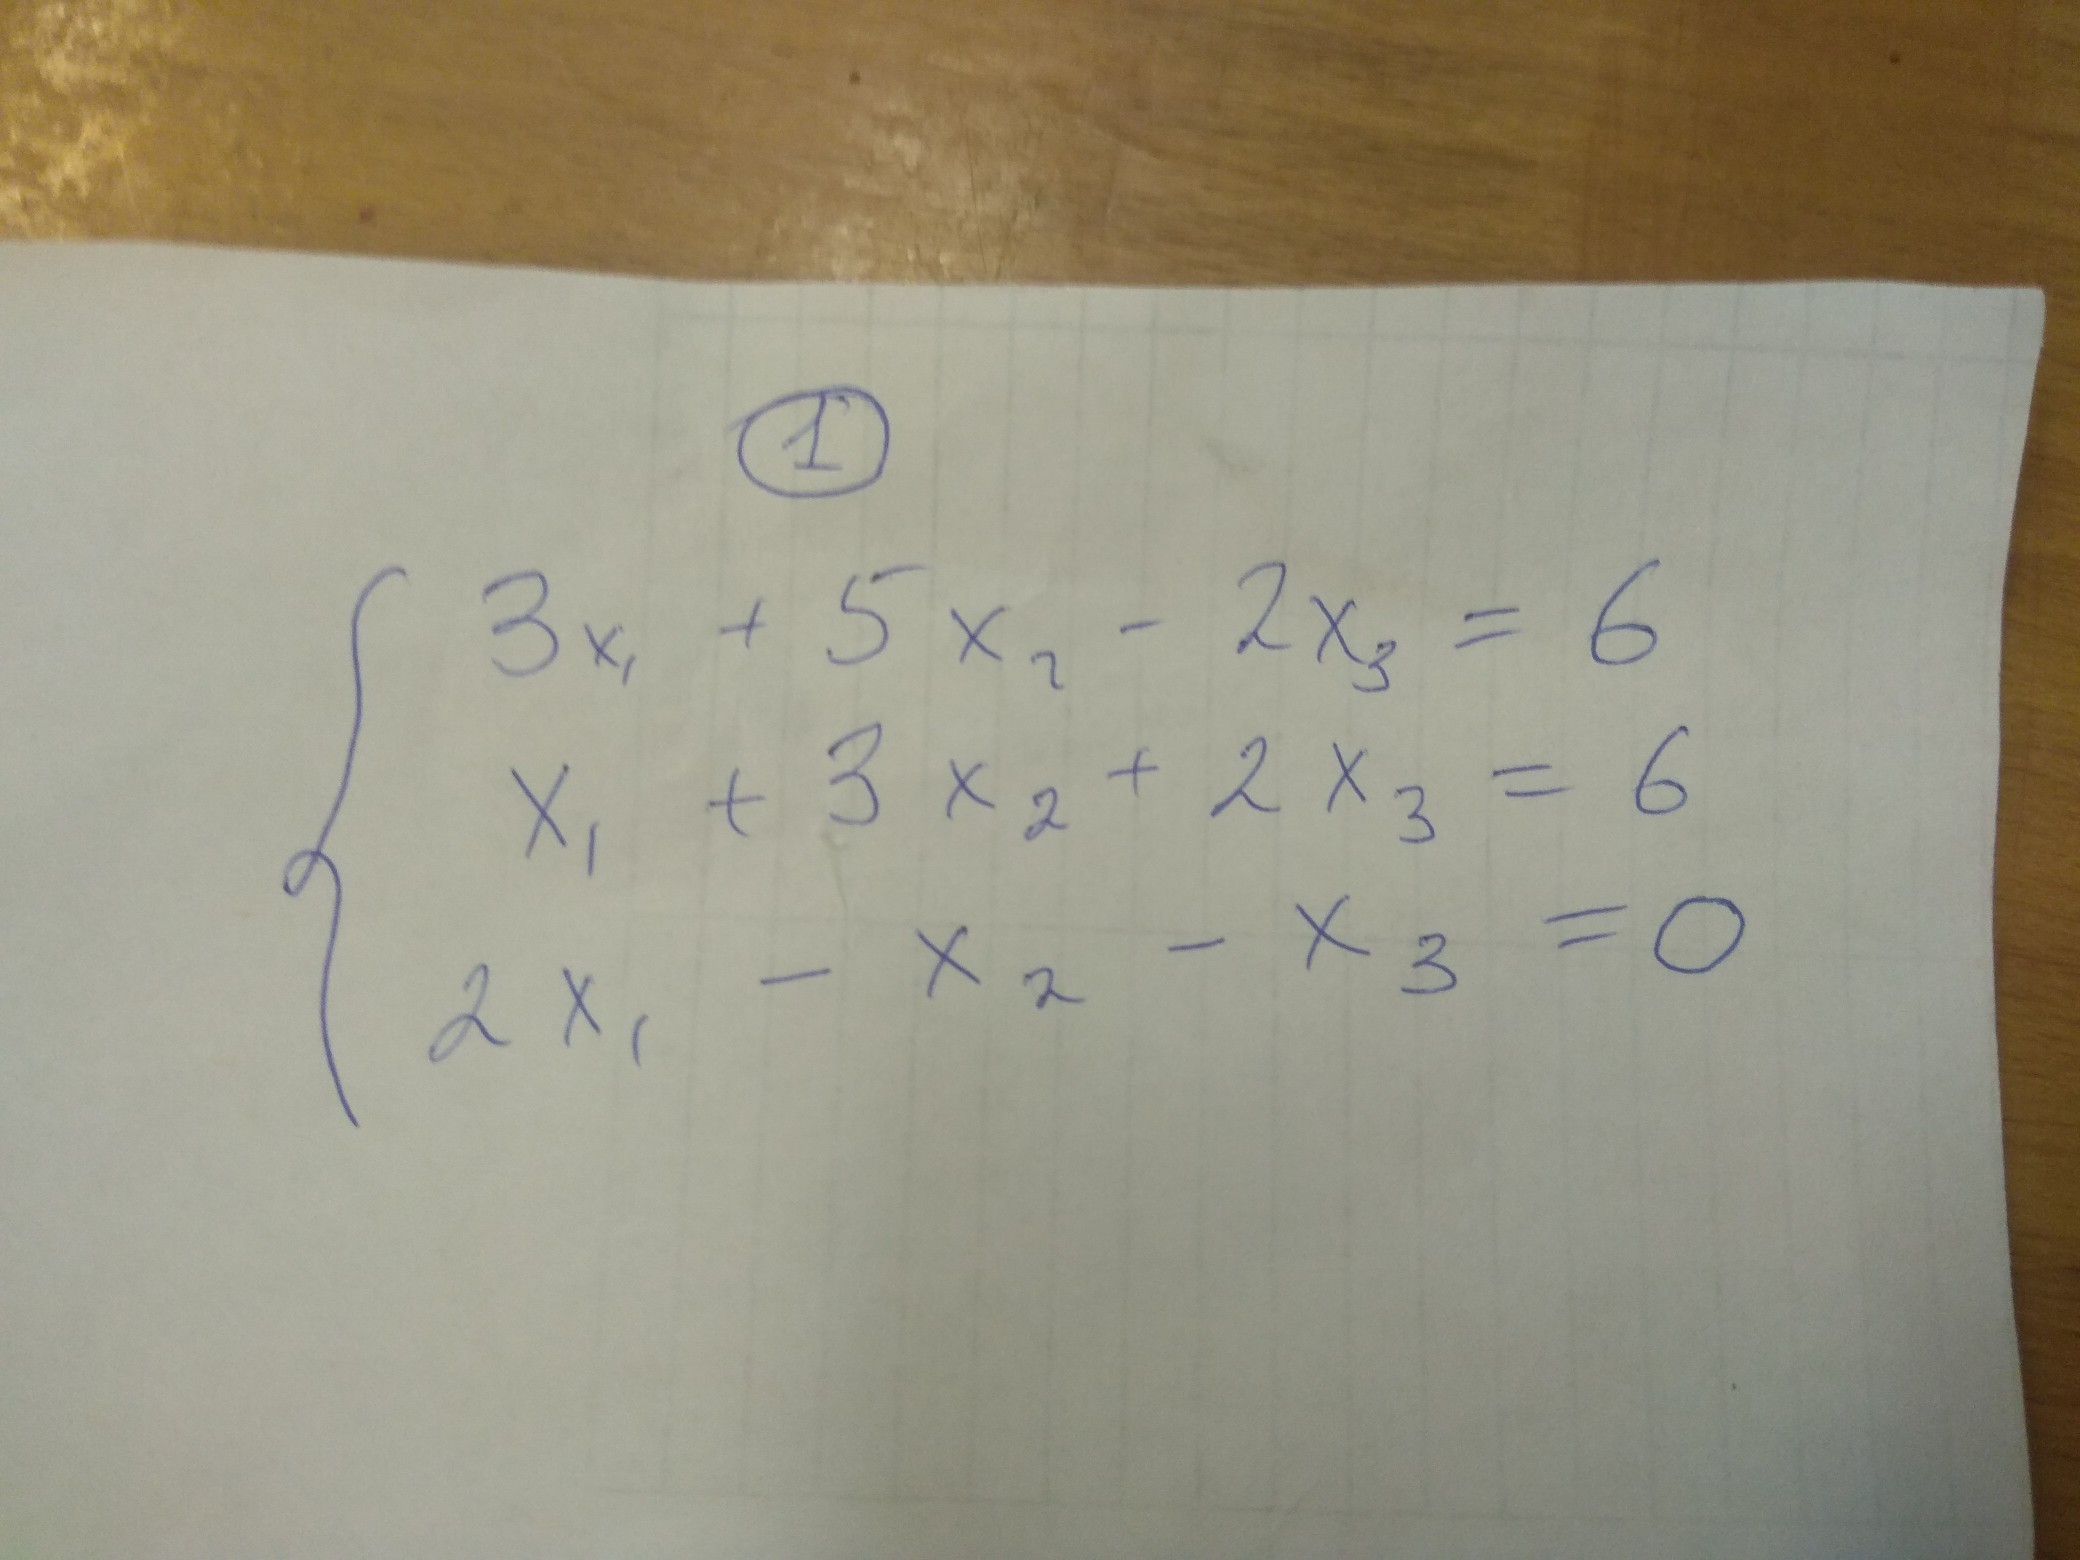 1
3x₁ + 5x₂ - 2x₃ = 6
x₁ + 3x₂ + 2x₃ = 6
2x₁ - x₂ - x₃ = 0